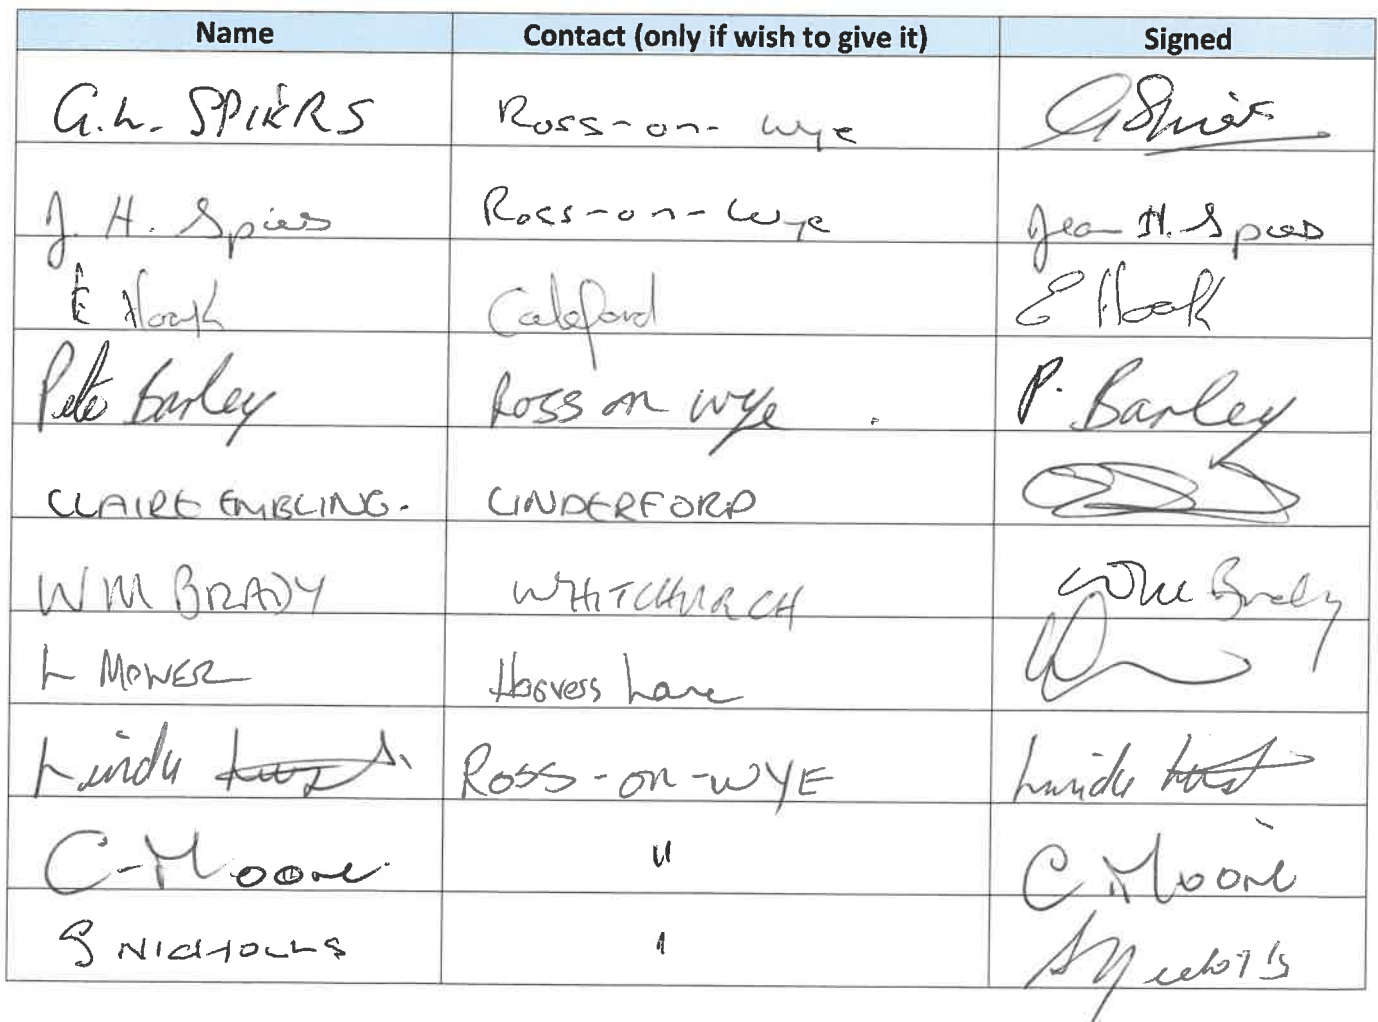 Name Contact (only if wish to give it) Signed
G.L. SPIERS Ross-on-Wye GSpiers
J. H. Spiers Ross-on-Wye Jean H. Spiers
E Hook Coleford E Hook
Pete Barley Ross on Wye . P. Barley
CLAIRE EMBLING. CINDERFORD
WM BRADY WHITCHURCH Wm Brady
L MOWER Lane
Linda ROSS-ON-WYE Linda
C-Moore. " C Moore
S NICHOLLS " S Nicholls